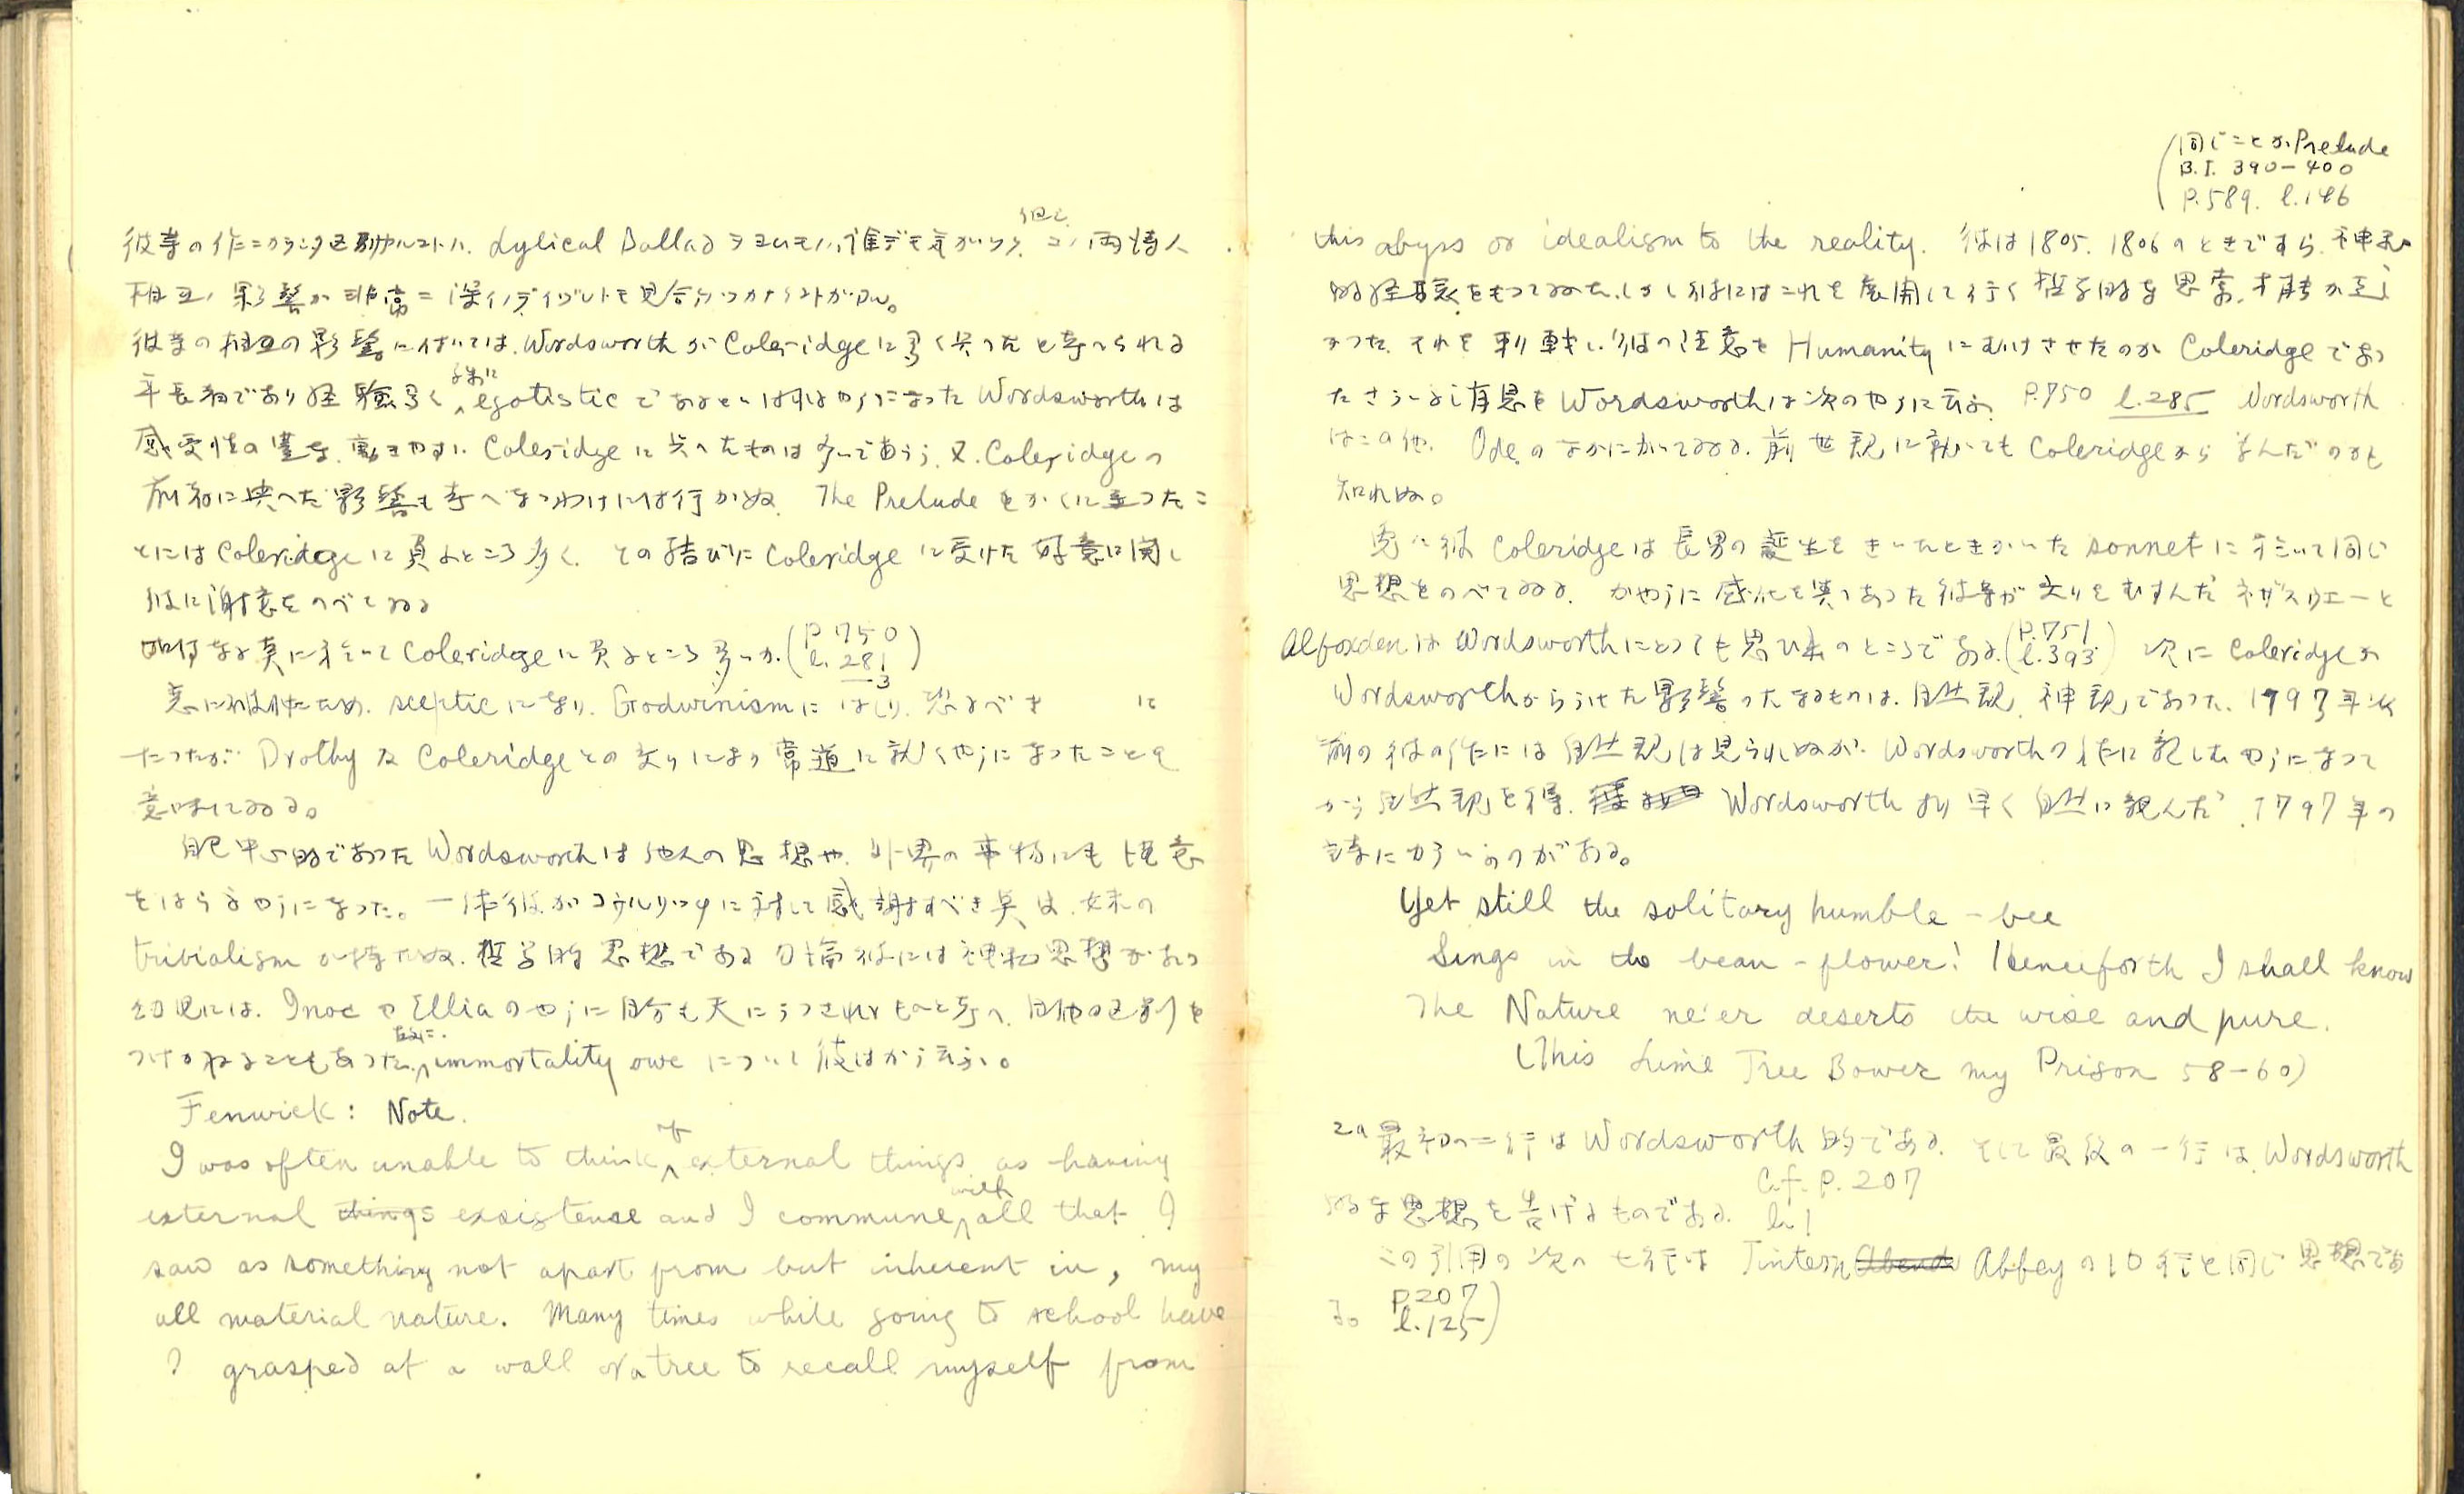 彼等の作ニカランタ区別アルコトハ、Lylical Ballad ヲヨムモノハ誰デモ気がツク、但シコノ両詩人
相互ノ影響が非常ニ深イノデイヅレトモ見分けツカナイコトガアル。
彼等の相互の影響に付いては、Wordsworth が Coleridge に多く与へたと考へられる
年長者であり経験多く、故に egotistic であるといはれるやうになった Wordsworth は
感受性の豊な、動きやすい Coleridge に与へたものは多いであらう。又、Coleridge の
前者に与へた影響も考へないわけには行かぬ。 The Prelude をかくに至つたこ
とには Coleridge に負ふところ多く、その結びに Coleridge に受けた好意に関し
彼に謝意をのべてゐる
如何なる点に於いて Coleridge に負ふところ多いか (P. 750 l. 281—3)
sceptic になり、Godwinism にはしり、恐るべき に
たつたが、Drothy 及 Coleridge との交りにより常道に就くやうになったことを
意味してゐる。
自己中心的であった Wordsworth は他人の思想や、外界の事物にも注意
をはらふやうになった。一体彼がコウルリッヂに対して感謝すべき点は、
trivialism 哲学的思想である 勿論彼には神秘思想があり
幼児には、Inoc や Ellia のやうに自分も天にうつされるものと考へ、自他の区別を
つけかねることもあった。故に immortality owe について彼はかう云ふ。
Fenwick : Note.
I was often unable to think of external things as having
external things exsistense and I commune with all that I
saw as something not apart from but inherent in, my
all material nature. Many times while going to school have
I grasped at a wall or a tree to recall myself from
(同じことが Prelude
B.I. 390-400
P. 589. l. 146
this abyss or idealism to the reality. 彼は1805. 1806のときですら、神秘
的経験をもつてゐた、しかし彼にはこれを展開して行く哲学的な思索、才能が乏し
かつた。それを刺戟し、彼の注意を Humanity にむけさせたのが Coleridge であつ
たさういふ意思を Wordsworth は次のやうに云ふ P. 750 l. 285 Wordsworth
はこの他、Ode のなかにかいてゐる、前世観に就いても Coleridge から学んだのかも
知れぬ。
更に彼 Coleridge は長男の誕生をきいたときかいた sonnet に於いて同じ
思想をのべてゐる。かやうに感化を与へあつた彼等が交りをむすんだネザスウェーと
Alfoxden は Wordsworth にとつても思ひ出のところである。(P. 751 l. 393) 次に Coleridge が
Wordsworth からうけた影響の大なるものは、自然観、神観であつた、1797年以
前の彼の作には自然観は見られぬが、Wordsworth の作に親しむやうになつて
から自然観を得、 Wordsworth より早く自然に親んだ、1797年の
詩にかういふのがある。
Yet still the solitary humble-bee
Sings in the bean-flower! Henceforth I shall know
The Nature ne'er deserts the wise and pure.
(This Lime Tree Bower my Prison 58-60)
この最初の二行は Wordsworth 的である。そして最後の一行は Wordsworth
的な思想を告げるものである。 C.f. P. 207 l. 1
この引用の次の七行は Tintern Abbey の10行と同じ思想であ
る。 P. 207 l. 125)